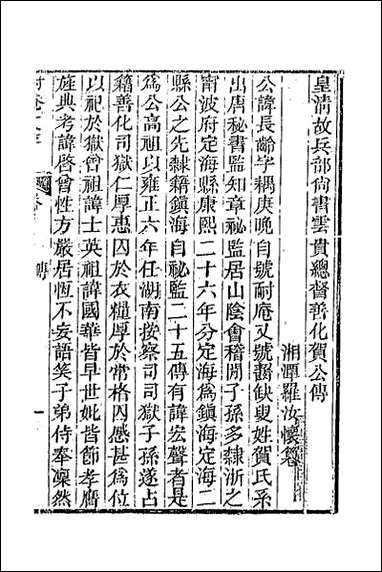 皇清故兵部尚書雲貴總督善化賀公傳
湘潭羅汝懷
公諱長齡字耦庚晚自號耐庵又號齧缺叟姓賀氏系
出唐秘書監知章秘監居山陰會稽閒子孫多隸浙之
甯波府定海縣康熙二十六年分定海為鎮海定海二
縣公之先隸籍鎮海自秘監二十五傳有諱宏聲者是
為公高祖以雍正六年任湖南按察司司獄子孫遂占
籍善化司獄仁厚惠囚於衣糧厚於常格囚感甚為位
以祀於獄曾祖諱士英祖諱國華皆早世妣皆節孝膺
旌典考諱啓曾性方嚴居恆不妄語笑子弟侍奉凜然
傳
一